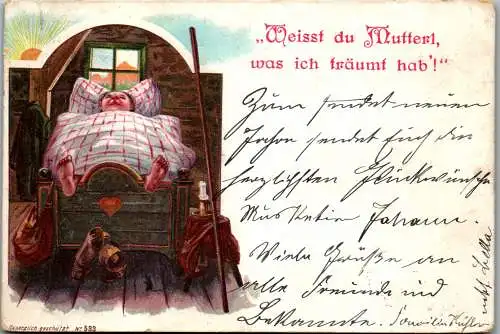 „Weisst du Mutterl,
was ich träumt hab'!"
Zum sendet neuen
Jahre sendet Euch die
herzlichsten Glückwünsche
Musketier Johann.
Viele Grüße an
alle Freunde und
Bekannte.
Gesetzlich geschützt. Nr. 533